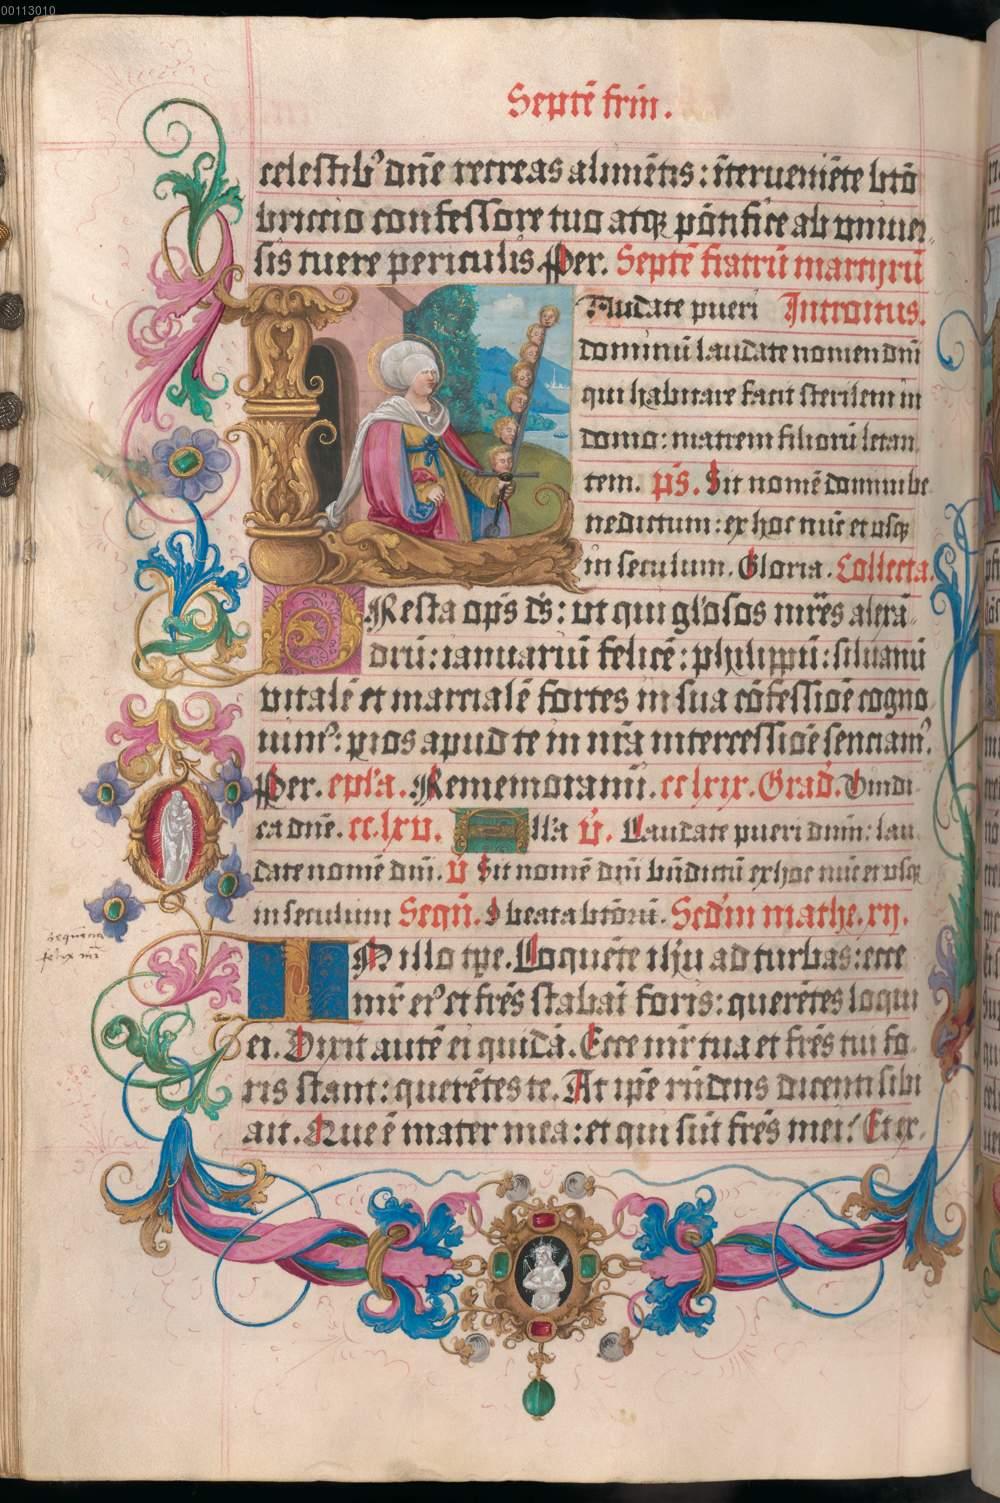 00113010
Septē frīm.
celestib⁹ dn̄e recreas alimētis: īterueniēte btō
briccio confessore tuo atqꝫ pōntifice ab vniuer
sis tuere periculis. Per. Septē fratrū martyrū
Laudate pueri Introitus.
dominū laudate nomen dnī
qui habitare facit sterilem in
domo: matrem filiorū letan
tem. p̄s. Sit nomē domini be
nedictum: ex hoc nūc et vsqꝫ
in seculum. Gloria. Collecta.
PResta op̄s ds̄: ut qui gl'osos mr̄es alexā
drū: ianuariū felicē: philippū: siluanū
vitalē et marcialē fortes in sua cōfessiōe cogno
uim⁹: pios apud te in nr̄a intercessiōe senciam⁹.
Per. ep̄la. Rememoramī. cclxix. Grad̄. Vindi
ca dn̄e. cclxv. Alla V̄. Laudate pueri dnm̄: lau
date nomē dnī. V̄ Sit nomē dnī bn̄dictū ex hoc nūc et vsqꝫ
in seculum Seqn̄. O beata btōrū. Sedm mathe. xij.
Sequencia
felix mr̄
IN illo tp̄e. Loquēte ih̄u ad turbas: ecce
mr̄ ei⁹ et frēs stabāt foris: querētes loqui
ei. Dixit autē ei quidā. Ecce mr̄ tua et frēs tui fo
ris stant: querētes te. At ip̄e rn̄dens dicenti sibi
ait. Que ē mater mea: et qui sūt frēs mei? Et ex